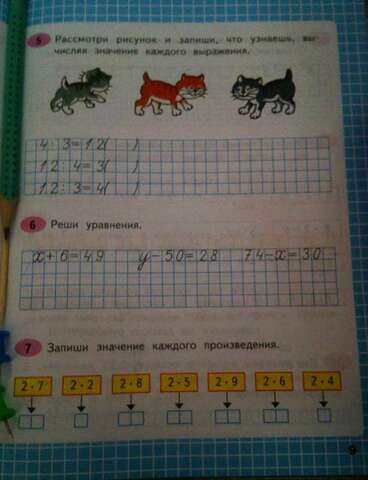 5 Рассмотри рисунок и запиши, что узнаешь, вы-
числяя значение каждого выражения.
4 : 3 = 12( )
12 : 4 = 3( )
12 : 3 = 4( )
6 Реши уравнения.
x + 6 = 49 y − 50 = 28 74 − x = 30
7 Запиши значение каждого произведения.
2 · 7 2 · 2 2 · 8 2 · 5 2 · 9 2 · 6 2 · 4
9